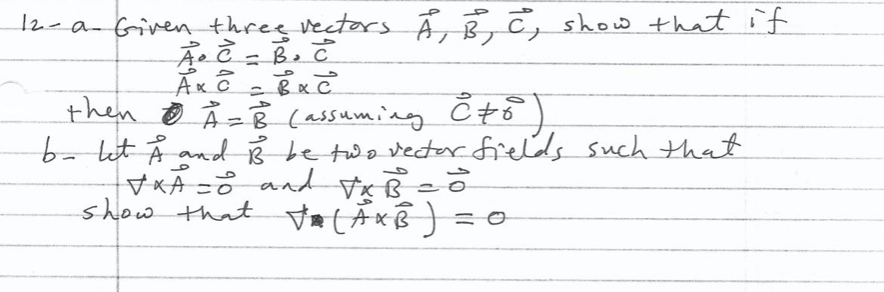 12- a- Given three vectors A⃗, B⃗, C⃗, show that if
A⃗ • C⃗ = B⃗ • C⃗
A⃗ × C⃗ = B⃗ × C⃗
then A⃗ = B⃗ (assuming C⃗ ≠ 0⃗)
b- let A⃗ and B⃗ be two vector fields such that
∇ × A⃗ = 0⃗ and ∇ × B⃗ = 0⃗
show that ∇ • (A⃗ × B⃗) = 0